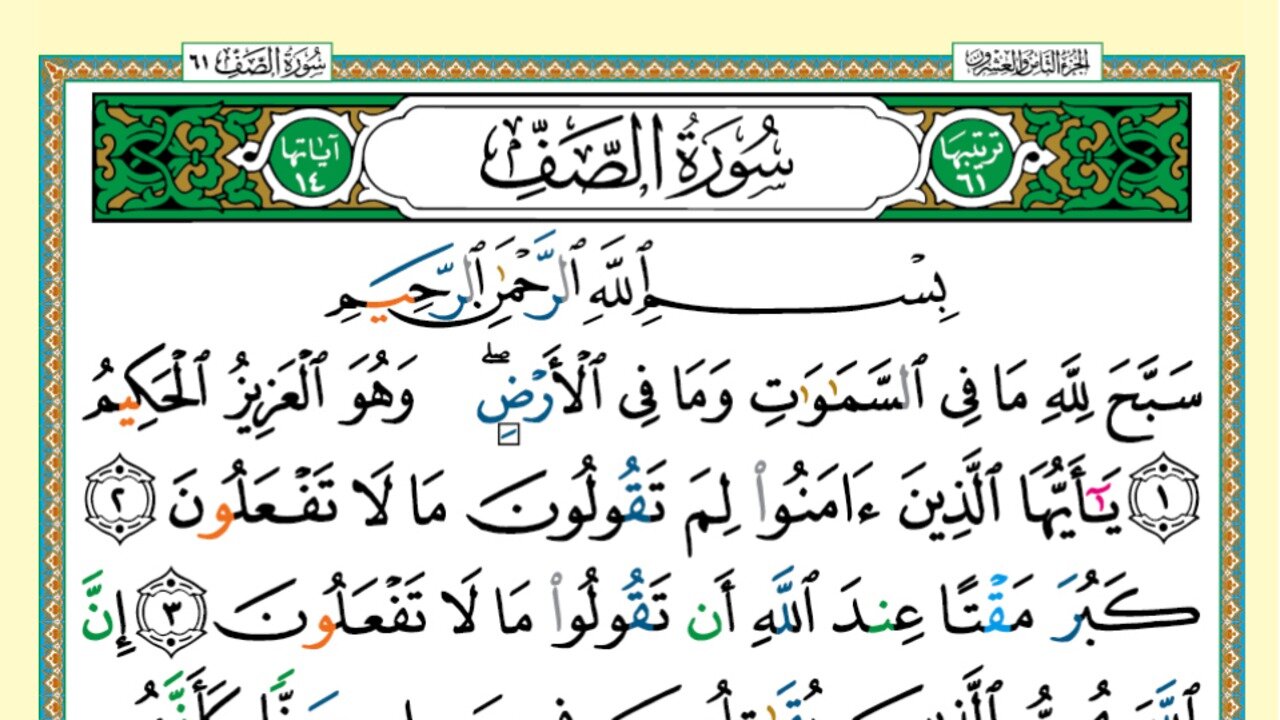 الجزء الثامن والعشرون
سُورَةُ الصَّفِّ ٦١
ترتيبها ٦١
سُورَةُ الصَّفِّ
آياتها ١٤
بِسْمِ ٱللَّهِ ٱلرَّحْمَٰنِ ٱلرَّحِيمِ
سَبَّحَ لِلَّهِ مَا فِى ٱلسَّمَٰوَٰتِ وَمَا فِى ٱلْأَرْضِ ۖ وَهُوَ ٱلْعَزِيزُ ٱلْحَكِيمُ
١ يَٰٓأَيُّهَا ٱلَّذِينَ ءَامَنُوا۟ لِمَ تَقُولُونَ مَا لَا تَفْعَلُونَ ٢
كَبُرَ مَقْتًا عِندَ ٱللَّهِ أَن تَقُولُوا۟ مَا لَا تَفْعَلُونَ ٣ إِنَّ